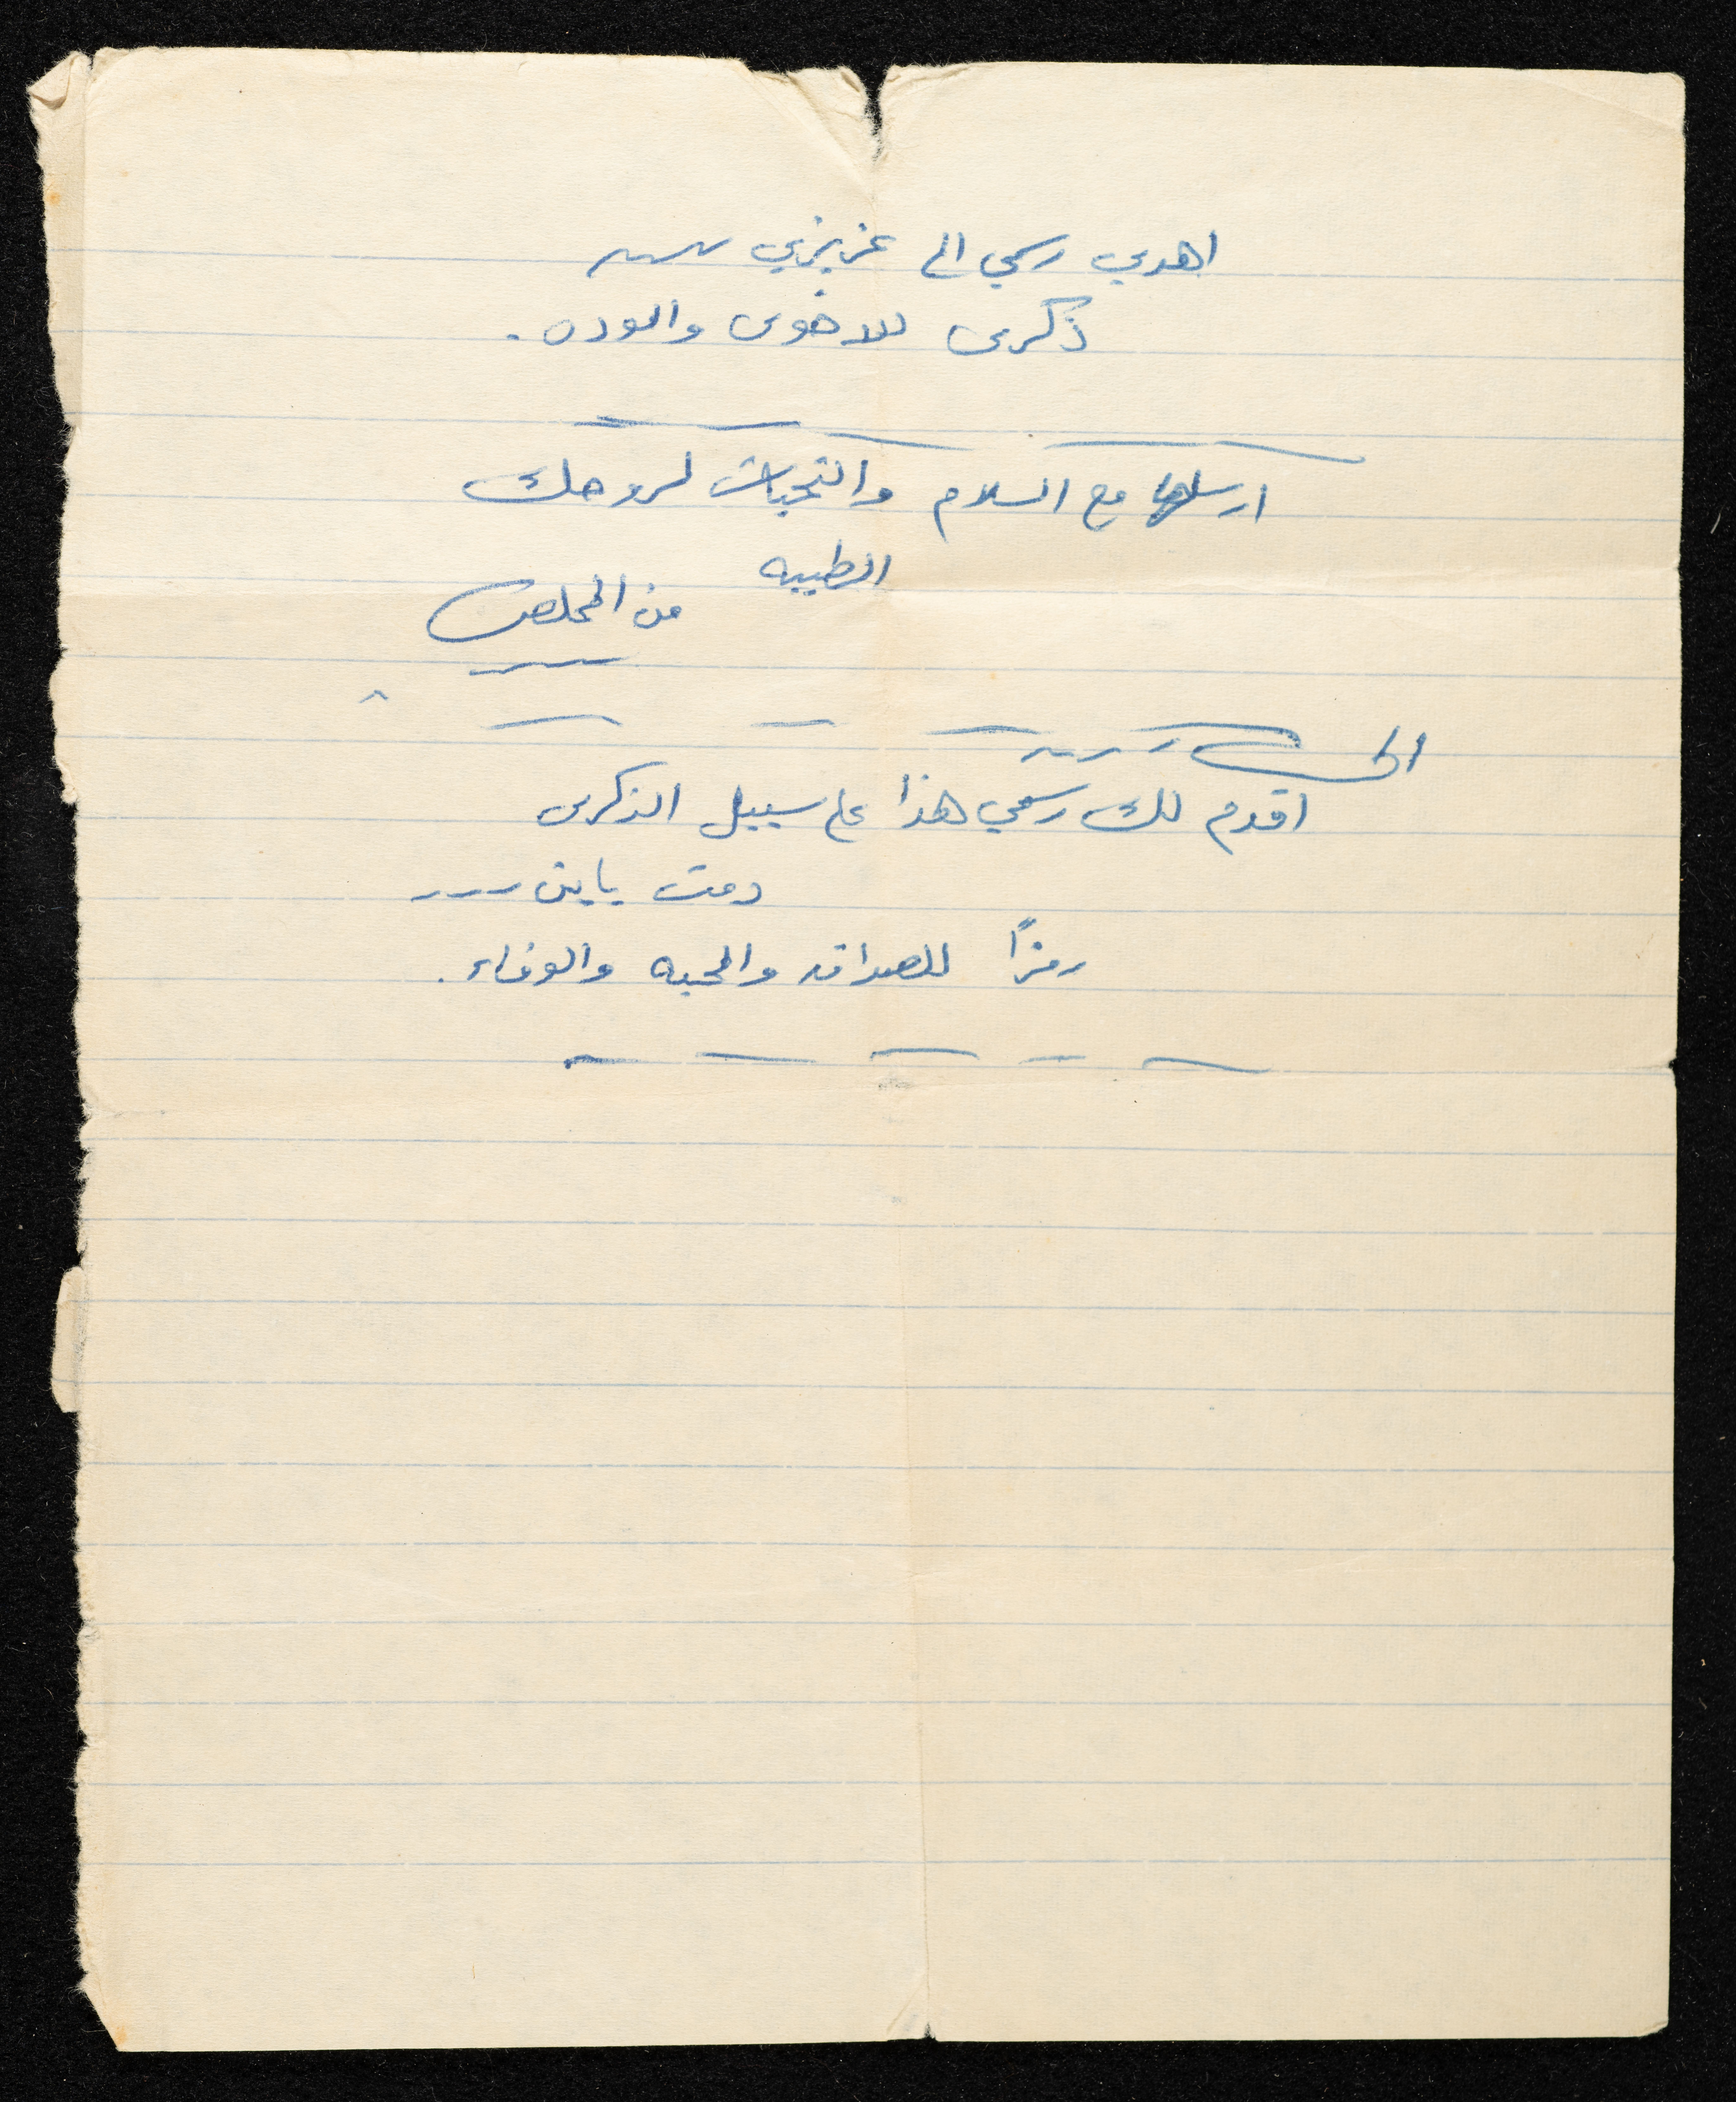 اهدي رسمي الى عزيزي
ذكرى للاخوى والوده .
ارسلها مع السلام والتحيات لروحك
الطيبه
من المخلص
الى
اقدم لك رسمي هذا على سبيل الذكرى
دمت يا ابن
رمزاً للصداقه والمحبه والوفاء .